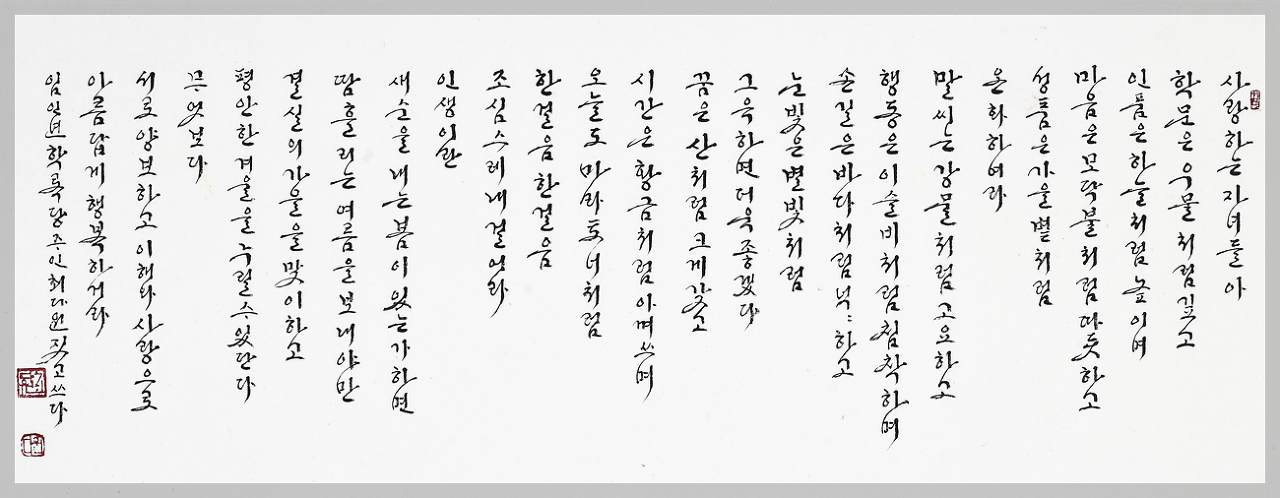 사랑하는 자녀들아
학문은 우물처럼 깊고
인품은 하늘처럼 높이며
마음은 모닥불처럼 따듯하고
성품은 가을볕처럼
온화하여라
말씨는 강물처럼 고요하고
행동은 이슬비처럼 침착하며
손길은 바다처럼 넉넉하고
눈빛은 별빛처럼
그윽하면 더욱 좋겠다
꿈은 산처럼 크게 갖고
시간은 황금처럼 아껴 쓰며
오늘도 마라토너처럼
한걸음 한걸음
조심스레 내 걸어라
인생이란
새순을 내는 봄이 있는가 하면
땀 흘리는 여름을 보내야만
결실의 가을을 맞이하고
평안한 겨울을 누릴 수 있단다
무엇보다
서로 양보하고 이해와 사랑으로
아름답게 행복하거라
임인년 학록당 주인 최다원 짓고 쓰다